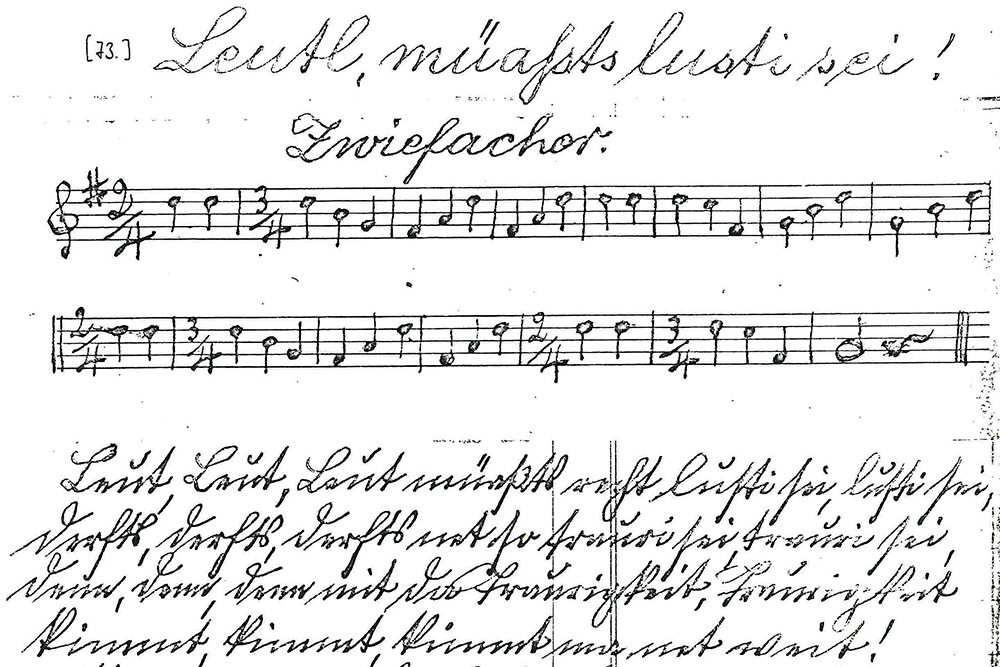 [73.] Leutl, müaßts lusti sei!
Zwiefacher.
2/4 3/4
2/4 3/4 2/4 3/4
Leut, Leut, Leut müaßts recht lusti sei, lusti sei,
derfts, derfts, derfts net so trauri sei, trauri sei,
denn, denn, denn mit da Traurigkeit, Traurigkeit
kimmt, kimmt, kimmt ma net weit!